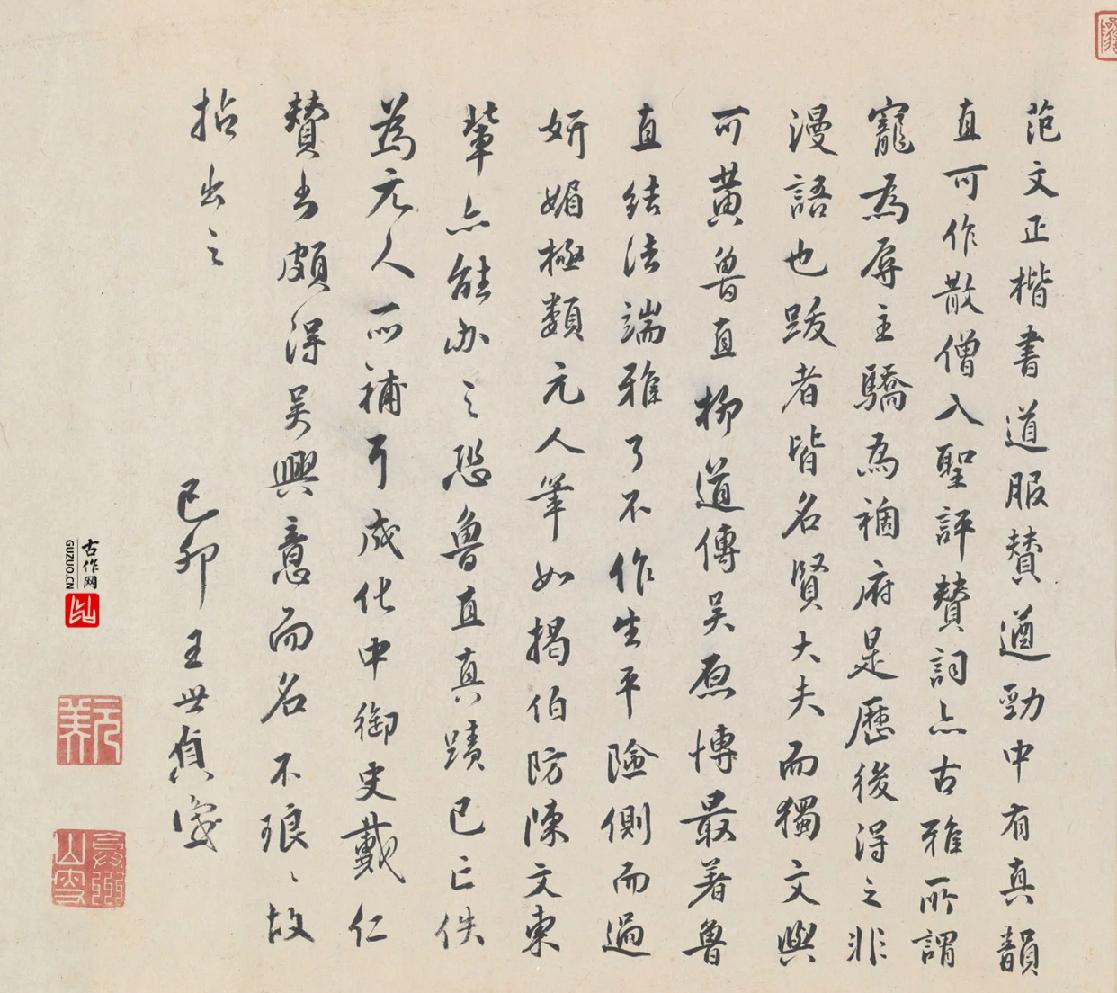 范文正楷書道服贊遒勁中有真韻
直可作散僧入聖評贊詞亦古雅所謂
寵為辱主驕為禍府是歷後得之非
漫語也跋者皆名賢大夫而獨文與
可黃魯直柳道傳吳原博最著魯
直結法端雅了不作生平險側而過
妍媚極類元人筆如揭伯防陳文東
輩亦能办之恐魯直真蹟已亡佚
為元人所補耳成化中御史戴仁
贊書頗得吳興意而名不琅〻故
拈出之
己卯王世貞識
元美
古作网
GUZUO.CN